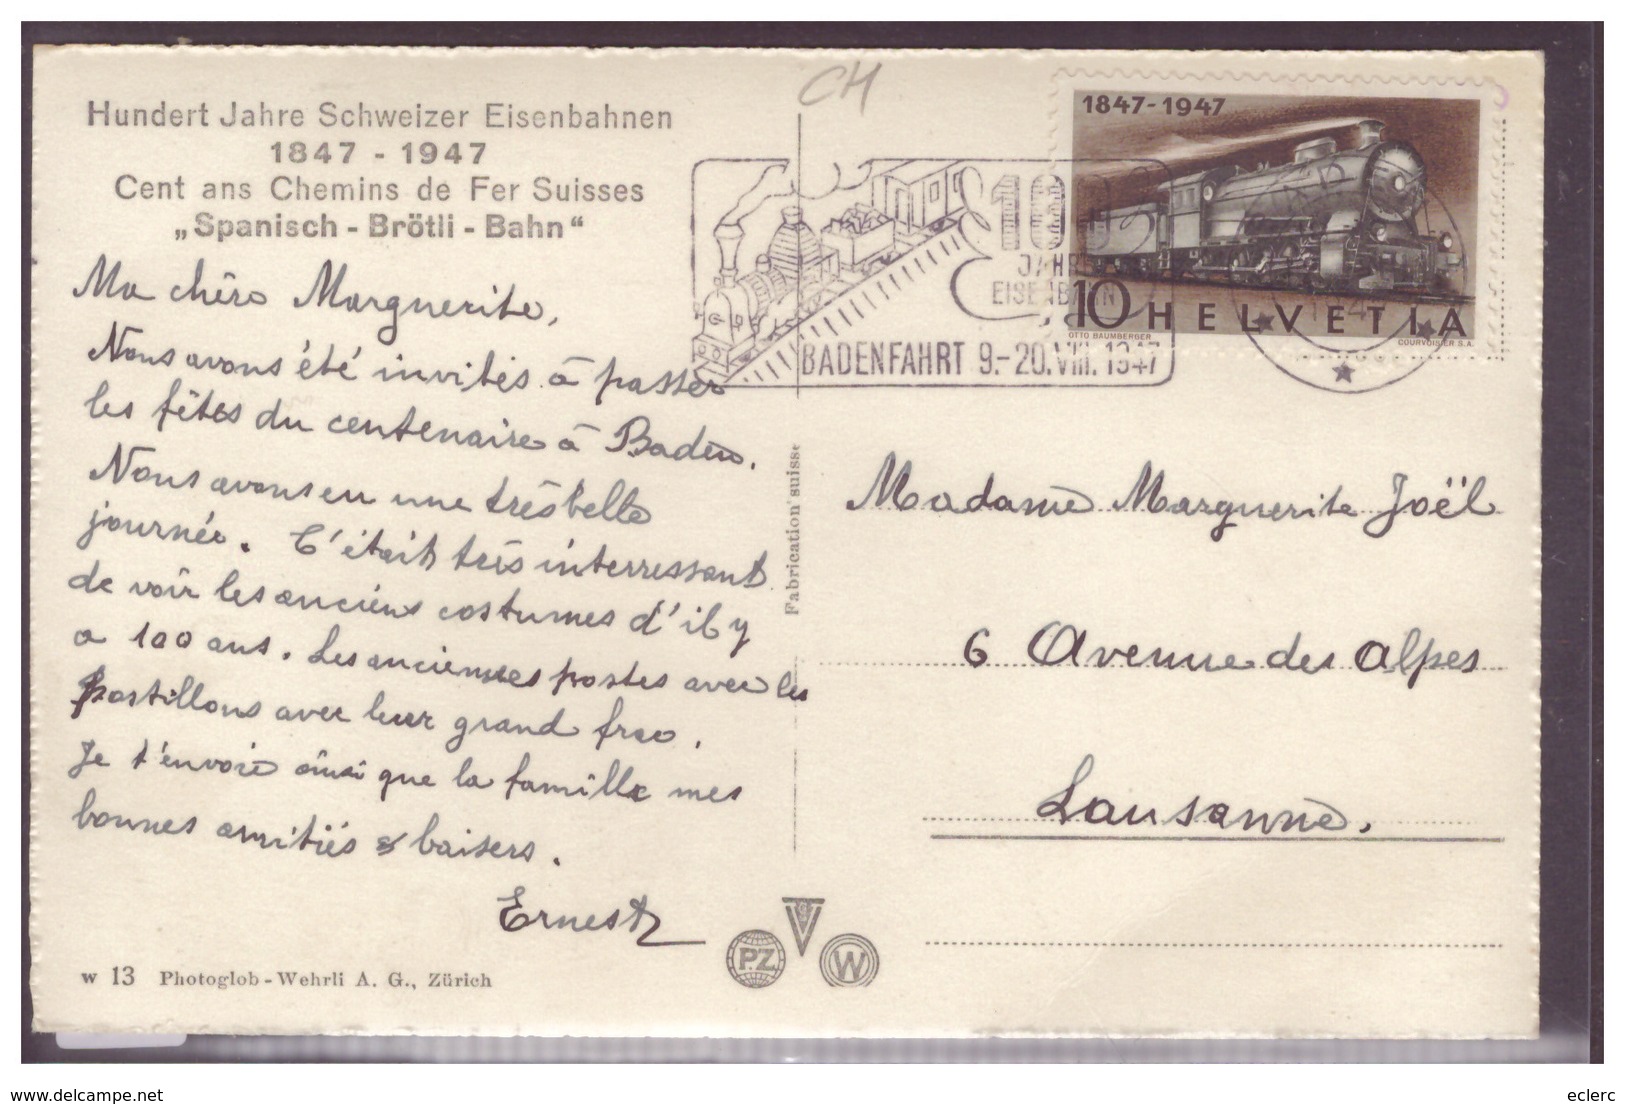 Hundert Jahre Schweizer Eisenbahnen
1847 - 1947
Cent ans Chemins de Fer Suisses
„Spanisch - Brötli - Bahn“
Ma chère Marguerite,
Nous avons été invités à passer
les fêtes du centenaire à Baden.
Nous avons eu une très belle
journée. C'était très interressant
de voir les anciens costumes d'il y
a 100 ans. Les anciennes postes avec les
postillons avec leur grand frac.
Je t'envoie ainsi que la famille mes
bonnes amitiés & baisers.
Ernest
w 13 Photoglob - Wehrli A. G., Zürich
CH
100
JAHRE
EISENBAHN
BADENFAHRT 9.-20.VIII.1947
1847-1947
10 HELVETIA
OTTO BAUMBERGER
COURVOISIER S.A.
Fabrication suisse
Madame Marguerite Joël
6 Avenue des Alpes
Lausanne.
PZ
W
delcampe.net
eclerc